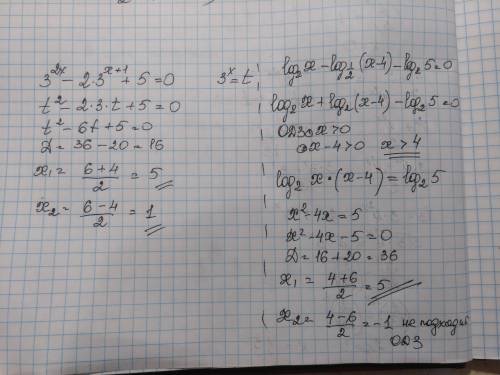 3^{2x} - 2·3^{x+1} + 5 = 0    3^x = t
t² - 2·3·t + 5 = 0
t² - 6t + 5 = 0
D = 36 - 20 = 16
x₁ = (6+4)/2 = 5
x₂ = (6-4)/2 = 1
log₂ x - log_{1/2} (x-4) - log₂ 5 = 0
log₂ x + log₂ (x-4) - log₂ 5 = 0
ОДЗ x > 0
x - 4 > 0    x > 4
log₂ x · (x-4) = log₂ 5
x² - 4x = 5
x² - 4x - 5 = 0
D = 16 + 20 = 36
x₁ = (4+6)/2 = 5
x₂ = (4-6)/2 = -1 не подходит
ОДЗ